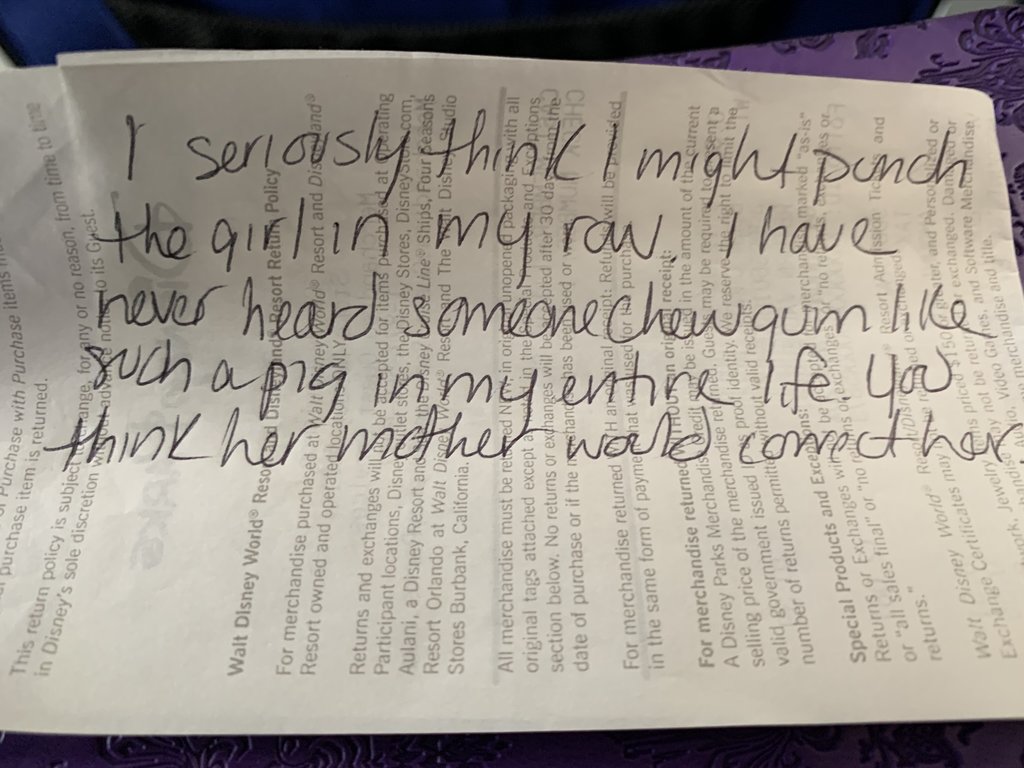 I seriously think I might punch
the girl in my row. I have
never heard someone chew gum like
such a pig in my entire life. You
think her mother would correct her.
Purchase with Purchase items
purchase item is returned.
This return policy is subject change, for any or no reason, from time to time
in Disney's sole discretion to its Guest.
Walt Disney World® Resort and Disneyland Resort Return Policy
For merchandise purchased at Walt Disney World® Resort and Disneyland®
Resort owned and operated locations ONLY
Returns and exchanges will be accepted for items purchased at operating
Participant locations, Disney outlet stores, the Disney Stores, DisneyStore.com,
Aulani, a Disney Resort and the Disney Cruise Line® Ships, Four Seasons
Resort Orlando at Walt Disney World® Resort and The Walt Disney Studio
Stores Burbank, California.
All merchandise must be returned NEW in original unopened packaging with all
original tags attached except as in the Special Products and Exceptions
section below. No returns or exchanges will be accepted after 30 days from the
date of purchase or if the merchandise has been used or
For merchandise returned WITH an original receipt. Refund will be provided
in the same form of payment that was used for its purchase.
For merchandise returned WITHOUT an original receipt:
A Disney Parks Merchandise credit may be issued in the amount of the current
selling price of the merchandise returned. Guest may be required to present a
valid government issued proof identity. We reserve the right to limit the
number of returns permitted without valid receipts.
Special Products and Exceptions:
Returns or Exchanges will be merchandise marked "as-is"
or "all sales final" or "no returns or exchanges" or "no
returns."
Walt Disney World® Resort /Disneyland® Resort /Admission Tickets and
Exchange Certificates may priced $150 or greater, and Personalized or
Jewelry may not be returned or exchanged. Damaged or
Audio, Video Games, and Software Merchandise